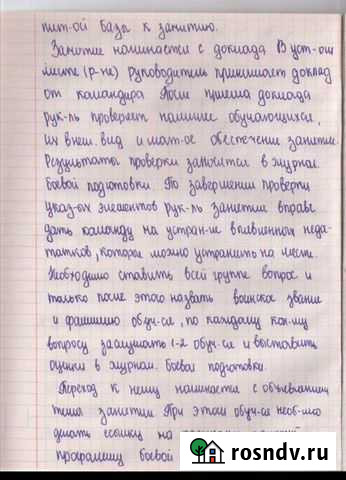 пит-ой база к занятию.
Занятие начинается с доклада В уст-ом
месте (р-не) руководитель принимает доклад
от командира После приема доклада
рук-ль проверяет наличие обучающихся,
их внеш. вид и мат-ое обеспечение занятия.
Результаты проверки заносятся в журнал
боевой подготовки. По завершении проверки
указ-ых элементов рук-ль занятия вправе
дать команду на устран-ие выявленных недо-
татков, которое можно устранить на месте.
Необходимо ставить всей группе вопрос и
только после этого назвать воинское звание
и фамилию обуч-ся, по каждому
вопросу заслушать 1-2 обуч-ся и выставить
оценки в журнал боевой подготовки.
Переход к нему начинается с объявления
тема занятия При этом обуч-ся необ-мо
сделать ссылку на
программу боевой
rosndv.ru